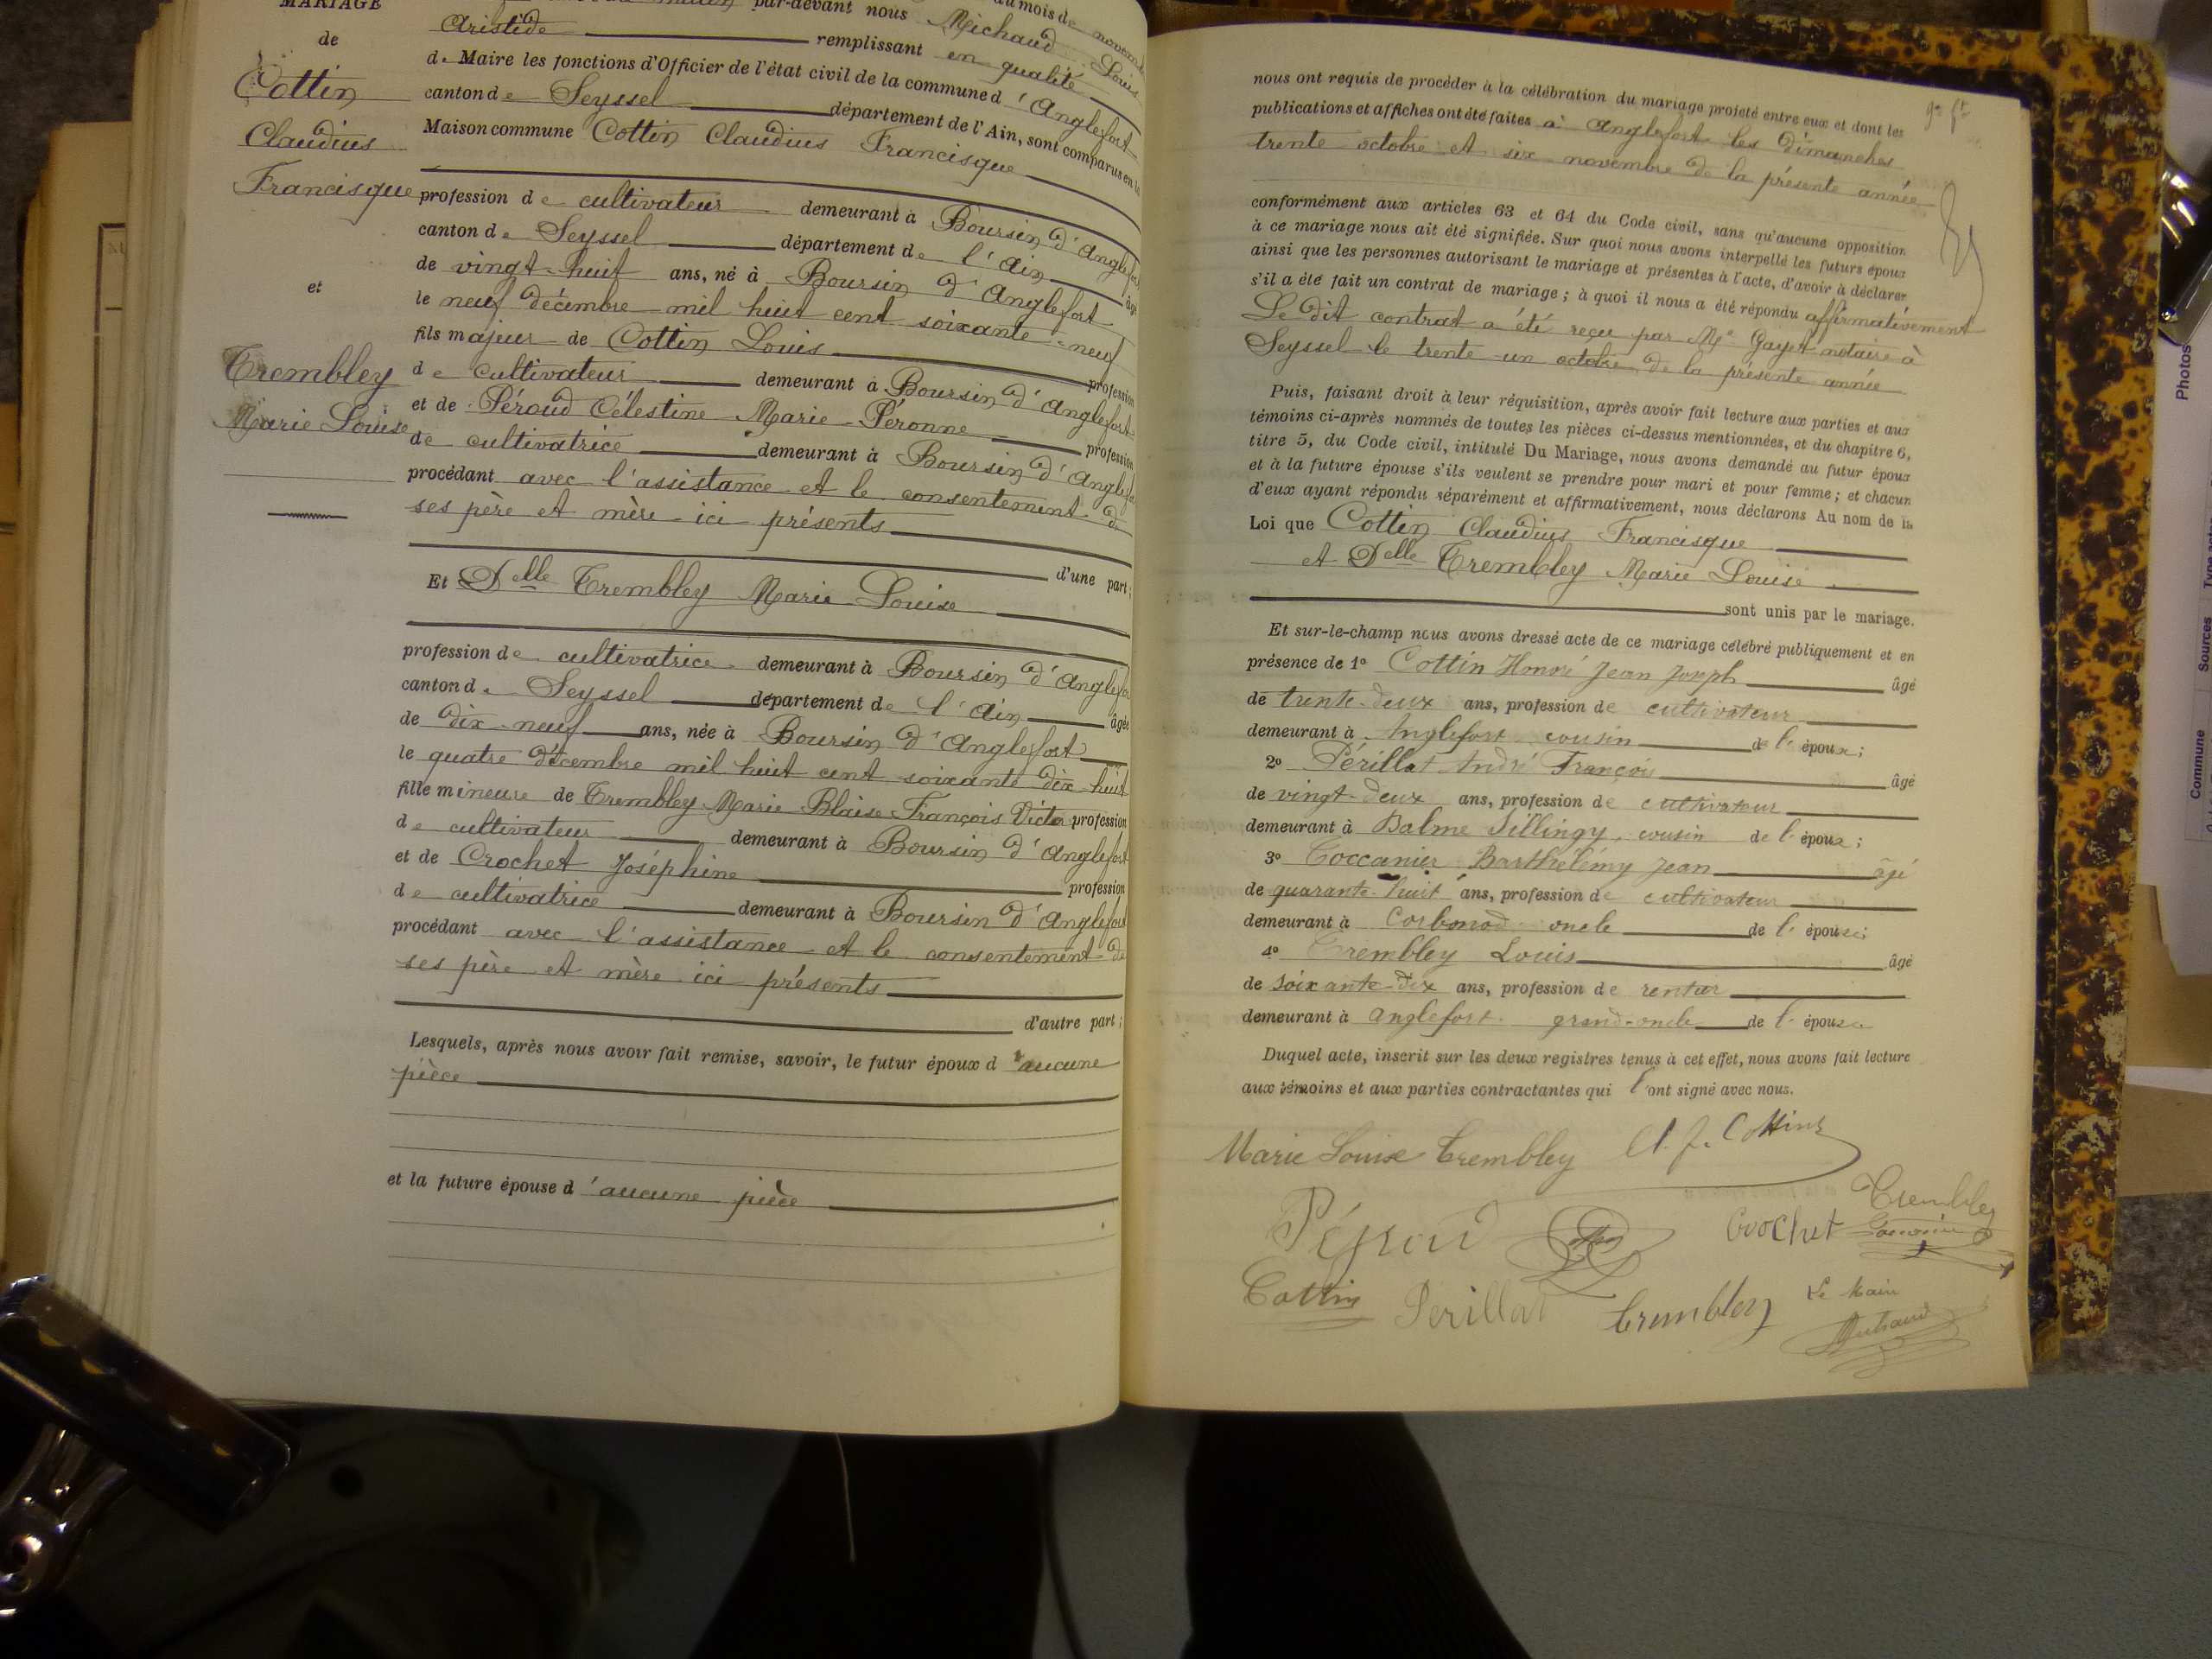 MARIAGE
de
Cottin
Claudius
Francisque
et
Trembley
Marie Louise
par-devant nous Michaud Louis
du mois de novembre
Aristide remplissant en qualité
de Maire les fonctions d'Officier de l'état civil de la commune d'Anglefort
canton de Seyssel département de l'Ain, sont comparus en la
Maison commune Cottin Claudius Francisque
profession de cultivateur demeurant à Boursin d'Anglefort
canton de Seyssel département de l'Ain âgé
de vingt-huit ans, né à Boursin d'Anglefort
le neuf décembre mil huit cent soixante-neuf
fils majeur de Cottin Louis profession
de cultivateur demeurant à Boursin d'Anglefort
et de Péroud Célestine Marie-Péronne profession
de cultivatrice demeurant à Boursin d'Anglefort
procédant avec l'assistance et le consentement de
ses père et mère ici présents
d'une part;
Et Delle Trembley Marie Louise
profession de cultivatrice demeurant à Boursin d'Anglefort
canton de Seyssel département de l'Ain âgée
de dix-neuf ans, née à Boursin d'Anglefort
le quatre décembre mil huit cent soixante dix-huit
fille mineure de Trembley Marie Blaise François Victor profession
de cultivateur demeurant à Boursin d'Anglefort
et de Crochet Joséphine profession
de cultivatrice demeurant à Boursin d'Anglefort
procédant avec l'assistance et le consentement de
ses père et mère ici présents
d'autre part;
Lesquels, après nous avoir fait remise, savoir, le futur époux d'aucune
pièce
et la future épouse d'aucune pièce
nous ont requis de procéder à la célébration du mariage projeté entre eux et dont les
publications et affiches ont été faites à Anglefort les dimanches
trente octobre et six novembre de la présente année
conformément aux articles 63 et 64 du Code civil, sans qu'aucune opposition
à ce mariage nous ait été signifiée. Sur quoi nous avons interpellé les futurs époux
ainsi que les personnes autorisant le mariage et présentes à l'acte, d'avoir à déclarer
s'il a été fait un contrat de mariage; à quoi il nous a été répondu affirmativement
Le dit contrat a été reçu par Me Gayet notaire à
Seyssel le trente-un octobre de la présente année
Puis, faisant droit à leur réquisition, après avoir fait lecture aux parties et aux
témoins ci-après nommés de toutes les pièces ci-dessus mentionnées, et du chapitre 6,
titre 5, du Code civil, intitulé Du Mariage, nous avons demandé au futur époux
et à la future épouse s'ils veulent se prendre pour mari et pour femme; et chacun
d'eux ayant répondu séparément et affirmativement, nous déclarons Au nom de la
Loi que Cottin Claudius Francisque
et Delle Trembley Marie Louise
sont unis par le mariage.
Et sur-le-champ nous avons dressé acte de ce mariage célébré publiquement et en
présence de 1° Cottin Honoré Jean Joseph âgé
de trente-deux ans, profession de cultivateur
demeurant à Anglefort cousin de l'époux;
2° Périllat André François âgé
de vingt-deux ans, profession de cultivateur
demeurant à Balme Sillingy, cousin de l'époux;
3° Coccanier Barthélémy Jean âgé
de quarante-huit ans, profession de cultivateur
demeurant à Corbonod oncle de l'épouse;
4° Trembley Louis âgé
de soixante-dix ans, profession de rentier
demeurant à Anglefort grand-oncle de l'épouse
Duquel acte, inscrit sur les deux registres tenus à cet effet, nous avons fait lecture
aux témoins et aux parties contractantes qui l'ont signé avec nous.
Marie Louise Trembley Cl. F. Cottin
Trembley
Péroud Crochet
Cottin Perillat Trembley Le Maire
Michaud
Photos
Type acte
Sources
Commune